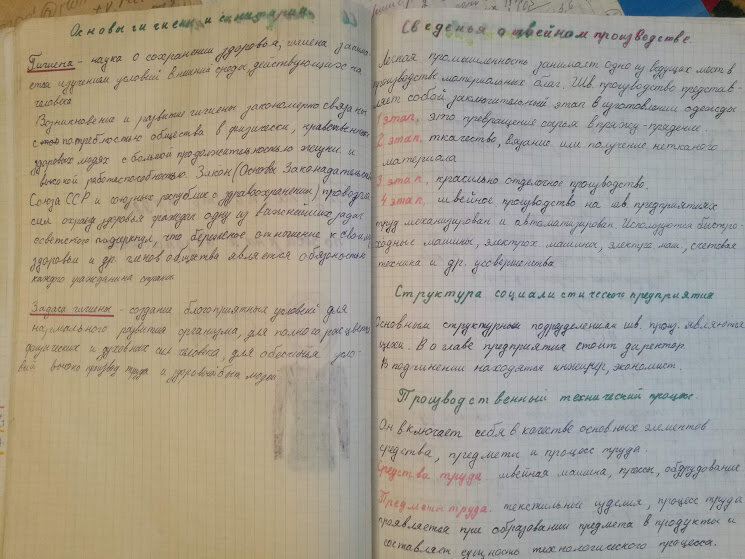 Основы гигиены и санитарии
Гигиена - наука о сохранении здоровья, гигиена занима
ется изучением условий внешней среды, действующих на
человека
Возникновение и развитие гигиены закономерно связаны
с потребностью общества в физически, нравственно
здоровых людях с большой продолжительностью жизни и
высокой работоспособностью. Закон (Основы Законодательства
Союза ССР и союзных республик о здравоохранении) провозгла
сил охрану здоровья граждан одну из важнейших задач
советского подчеркнул, что бережное отношение к своему
здоровью и др. членов общества является обязанностью
каждого гражданина страны
Задача гигиены - создание благоприятных условий для
нормального развития организма, для полного расцвета
физических и духовных сил человека, для обеспечения усло-
вий высоко производ. труда и здоровой быта людей
Сведенья о швейном производстве.
Легкая промышленность занимает одно из ведущих мест в
производстве материальных благ. Шв производство представ-
ляет собой заключительный этап в изготовлении одежды
1 этап, это превращение сырья в пряжу-прядение.
2 этап, ткачество, вязание или получение нетканого
материала
3 этап, красильно отделочное производство.
4 этап, швейное производство на шв предприятиях
труд механизирован и автоматизирован. Используются быстро-
ходные машины, электрох машины, электро маш.,
техника и др. усовершенства
Структура социалистического предприятия
Основным структурным подразделениям шв. произ. являются
цехи. Во главе предприятия стоит директор
В подчинении находятся инжинер, экономист.
Производственный технический процесс.
Он включает себя в качестве основных элементов
средства, предметы и процесс труда.
Средства труда швейная машина, прессы, обдрудование
Предметы труда. текстильное изделия, процесс труда
проявляется при образовании предмета в продукты и
составляет сущность технологического процесса.